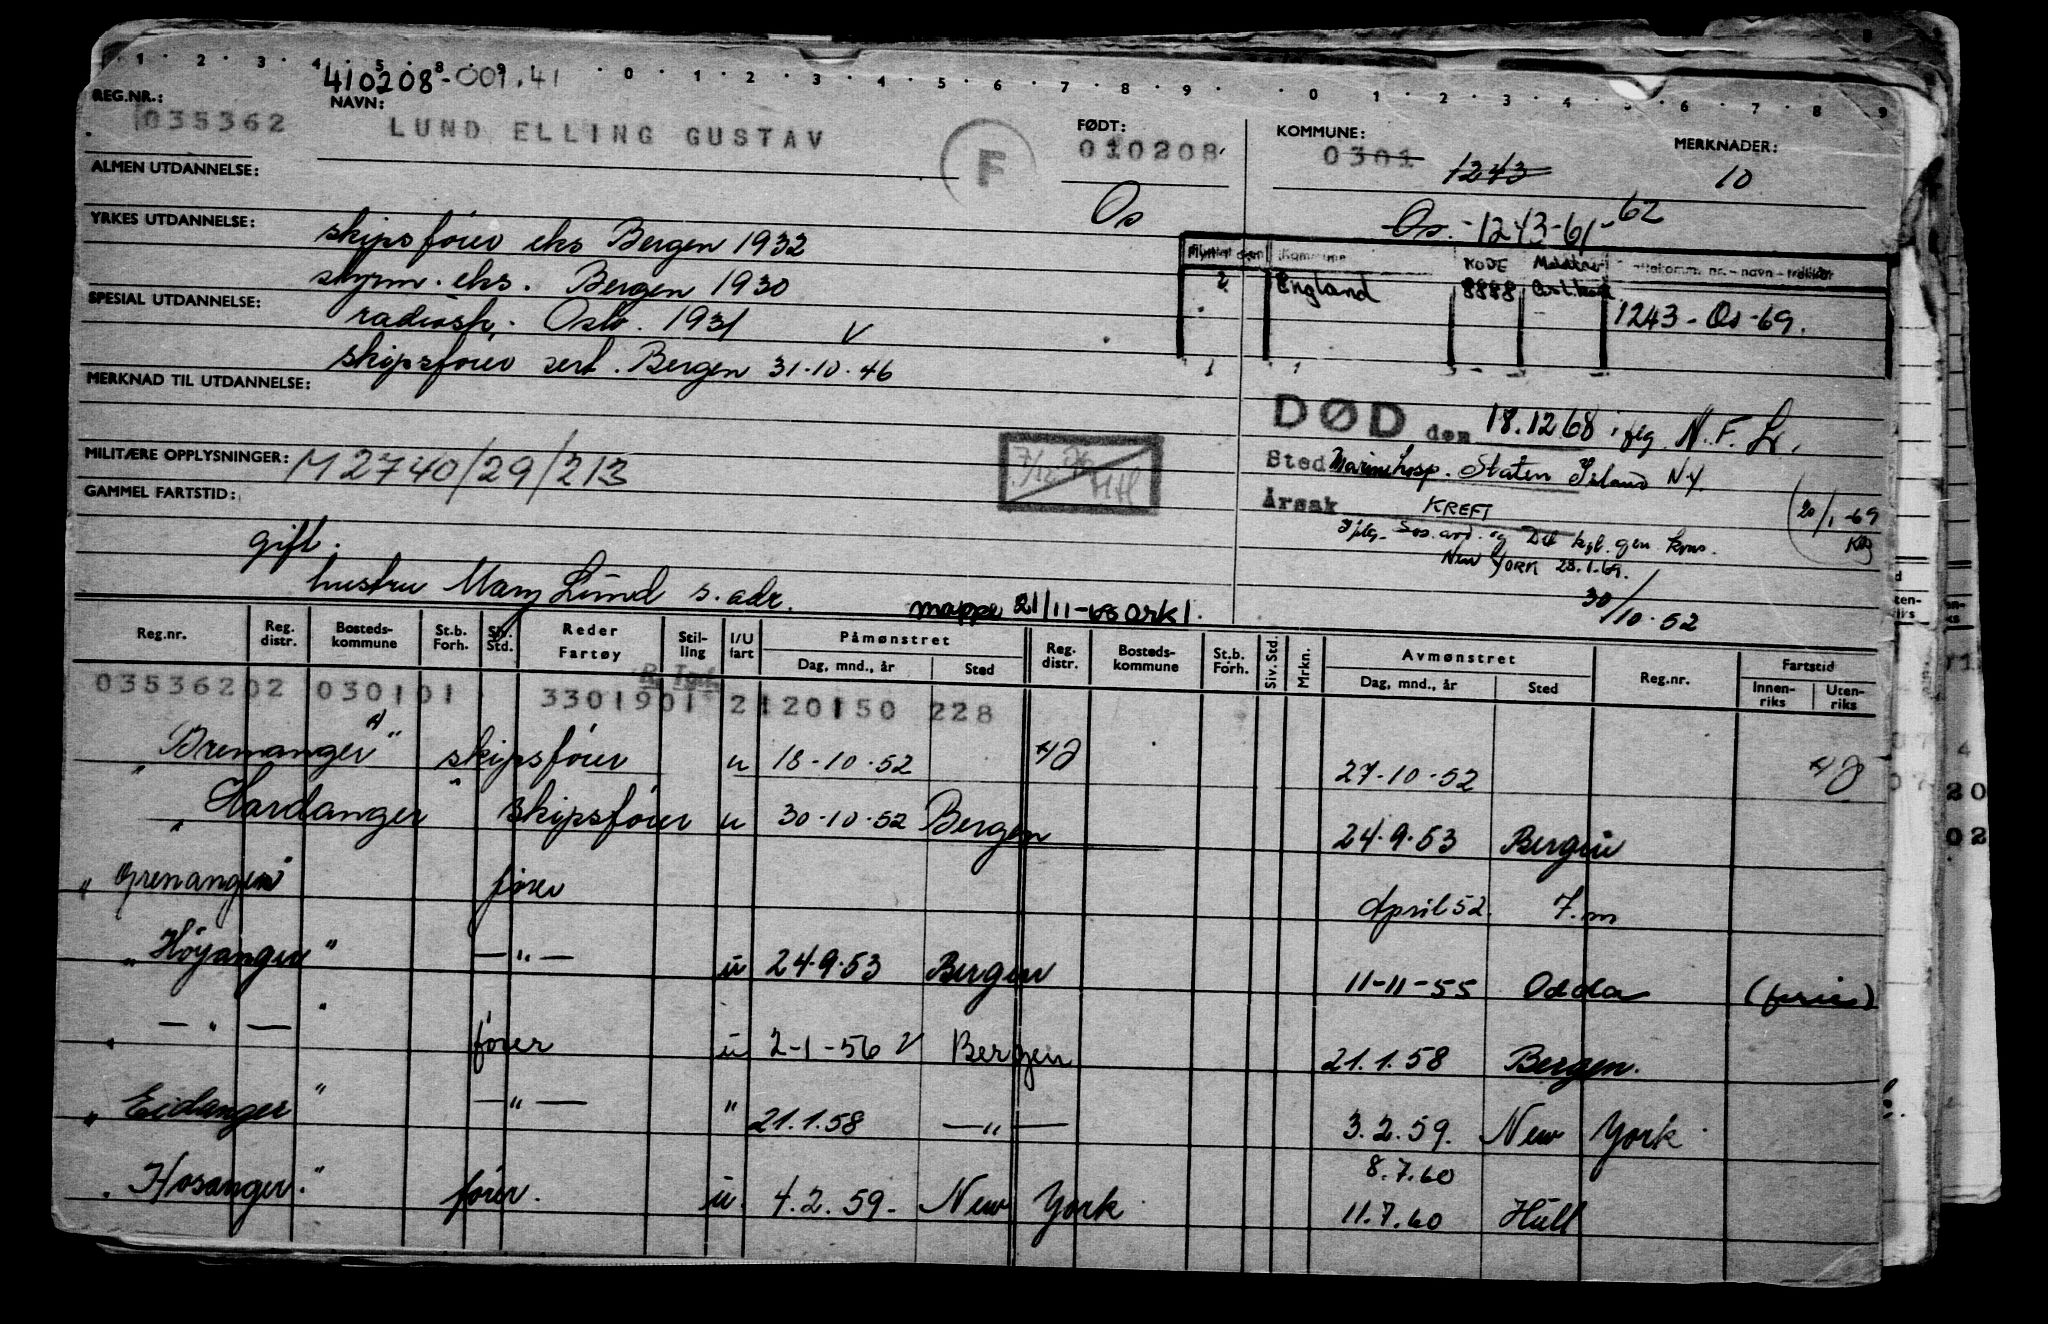 410208-001.41
REG.NR.:
035362
NAVN:
LUND ELLING GUSTAV
F
FØDT:
010208
KOMMUNE:
0301
1243
MERKNADER:
10
ALMEN UTDANNELSE:
Os
Os.-1243-61-62
YRKES UTDANNELSE:
skipsfører eks Bergen 1932
styrm. eks. Bergen 1930
Kommune
KODE
England
8888
1243-Os-69.
SPESIAL UTDANNELSE:
radiosk. Oslo. 1931 V
skipsfører sert. Bergen 31.10.46
MERKNAD TIL UTDANNELSE:
DØD den 18.12 68 iflg. N.F.L.
Sted Marinehosp. Staten Island N.Y.
MILITÆRE OPPLYSNINGER:
M 2740/29/213
Årsak KREFT
20/1-69
GAMMEL FARTSTID:
New YORK 28.1.69.
gift.
hustru Mary Lund s. adr.
mappe 21/11-68 ark 1.
30/10-52
Reg.nr. Reg. distr. Bosteds-kommune St.b. Forh. Siv. Std. Reder Fartøy Stil-ling I/U fart Påmønstret Dag, mnd., år Sted Reg. distr. Bosteds-kommune St.b. Forh. Siv. Std. Mrkn. Avmønstret Dag, mnd., år Sted Reg.nr. Fartstid Innen-riks Uten-riks
03536202 030101 3301901 2120150 228
"Bremanger" skipsfører u 18-10-52 27-10-52
"Hardanger" skipsfører u 30-10-52 Bergen 24.9.53 Bergen
"Grenanger" fører April 52. 7.m
"Höyanger" —"— u 24.9.53 Bergen 11-11-55 Odda (ferie)
" — " — " fører u 2-1-56 V Bergen 21.1.58 Bergen.
"Eidanger" —"— " 21.1.58 —"— 3.2.59. New York.
8.7.60
"Hosanger." fører. u. 4.2.59. New York 11.7.60 Hull